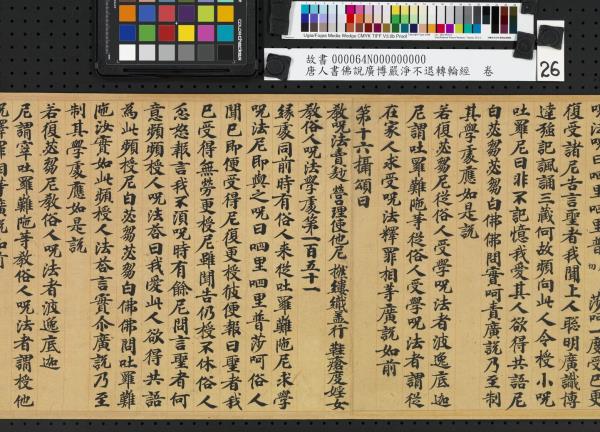 Ugra/Fogra Media Wedge CMYK TIFF V3.0b Proof
故書 000064N000000000
唐人書佛說廣博嚴淨不退轉輪經 卷
26
復受諸尼告言聖者我聞上人聰明廣識博
達強記諷誦三藏何故頻向此人令授小呪
吐羅尼曰非不記憶我愛其人欲得共語尼
白苾芻苾芻白佛佛問實呵責廣說乃至制
其學處應如是說
若復苾芻尼從俗人受學呪法者波逸底迦
尼謂吐羅難陁等從俗人受學呪法者謂從
在家人求受呪法釋罪相等廣說如前
第十六攝頌曰
教呪法賣麨 營理使他尼 撚縷織蓋行 鞋瘡度婬女
教俗人呪法學處第一百五十一
緣處同前時有俗人來從吐羅難陁尼求學
呪法尼即與之呪曰呬里呬里普莎呵俗人
聞已即便受得尼復更授彼便報曰聖者我
已受得無勞更授尼雖聞告仍授不休俗人
忿怒報言我不須呪時有餘尼問言聖者何
意頻頻授人呪法荅曰我愛此人欲得共語
為此頻授尼白苾芻苾芻白佛佛問吐羅難
陁汝實如此頻授人法荅言實尒廣說乃至
制其學處應如是說
若復苾芻尼教俗人呪法者波逸底迦
尼謂窣吐羅難陁等教俗人呪法者謂授他